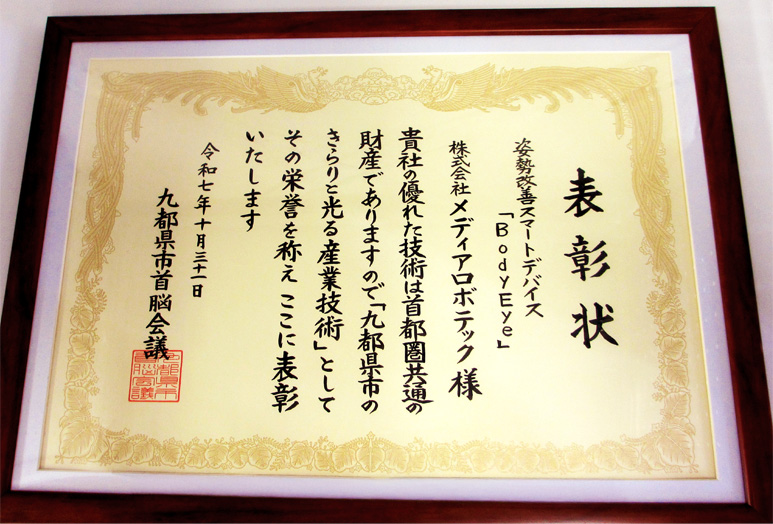 表彰状
姿勢改善スマートデバイス
「BodyEye」
株式会社 メディアロボテック 様
貴社の優れた技術は首都圏共通の
財産でありますので「九都県市の
きらりと光る産業技術」として
その栄誉を称え ここに表彰
いたします
令和七年十月三十一日
九都県市首脳会議
九都県市
首脳会議